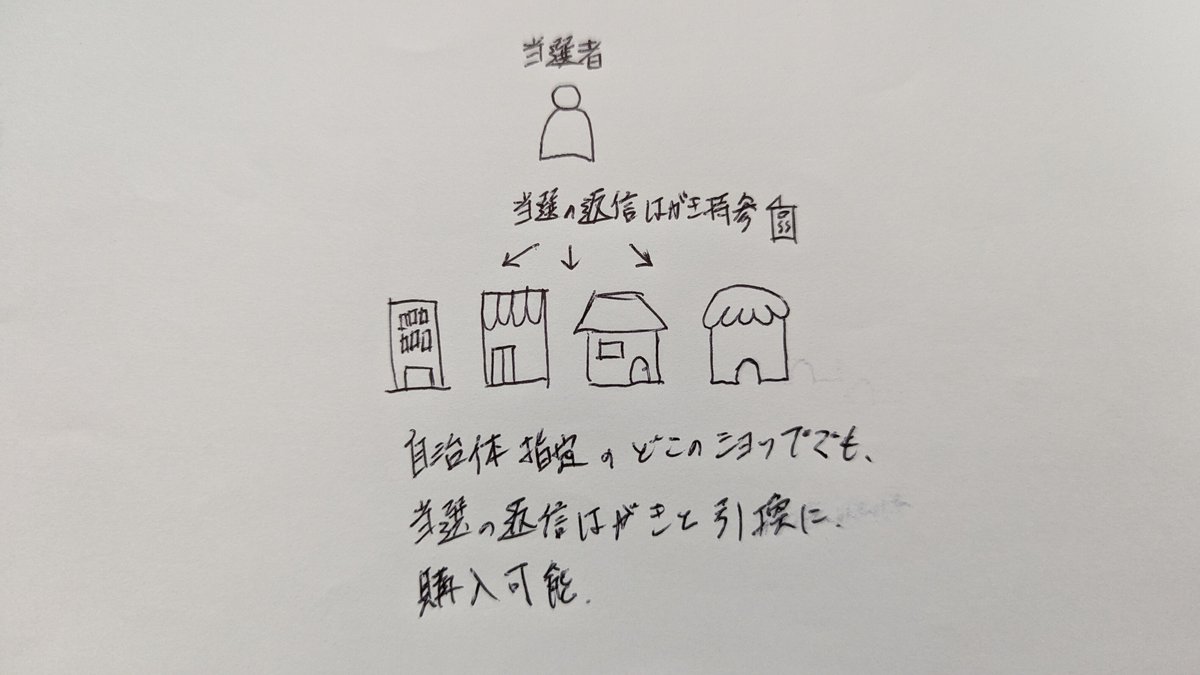 当選者
当選の返信はがき持参
自治体指定のどこのショップでも、
当選の返信はがきと引換に、
購入可能.